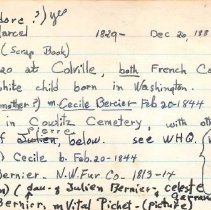 dore ?) yes
arcel 1829- Dec 20, 188
(Scrap Book)
20 at Colville, both French Ca
hite child born in Washington.
mother?) m. Cecile Bercier Feb. 20-1844
in Cowlitz Cemetery, with othe
Pierre
f Julien, below. see WHQ. V
) Cecile b. Feb. 20-1844
ernier. - N.W. Fur Co. 1813-14
m ( dau. of Julien Bernier, celeste
Germain
Bernier, m Vital Pichet-(picture)